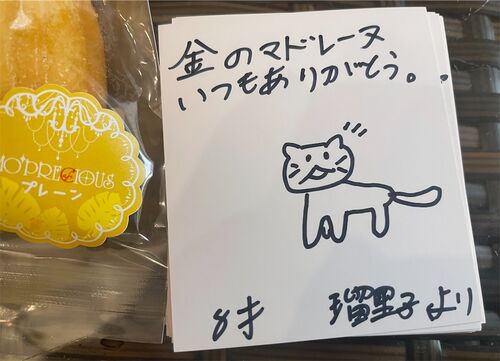 金のマドレーヌ
いつもありがとう。
MO'PRECIOUS
プレーン
8才 瑠里子より